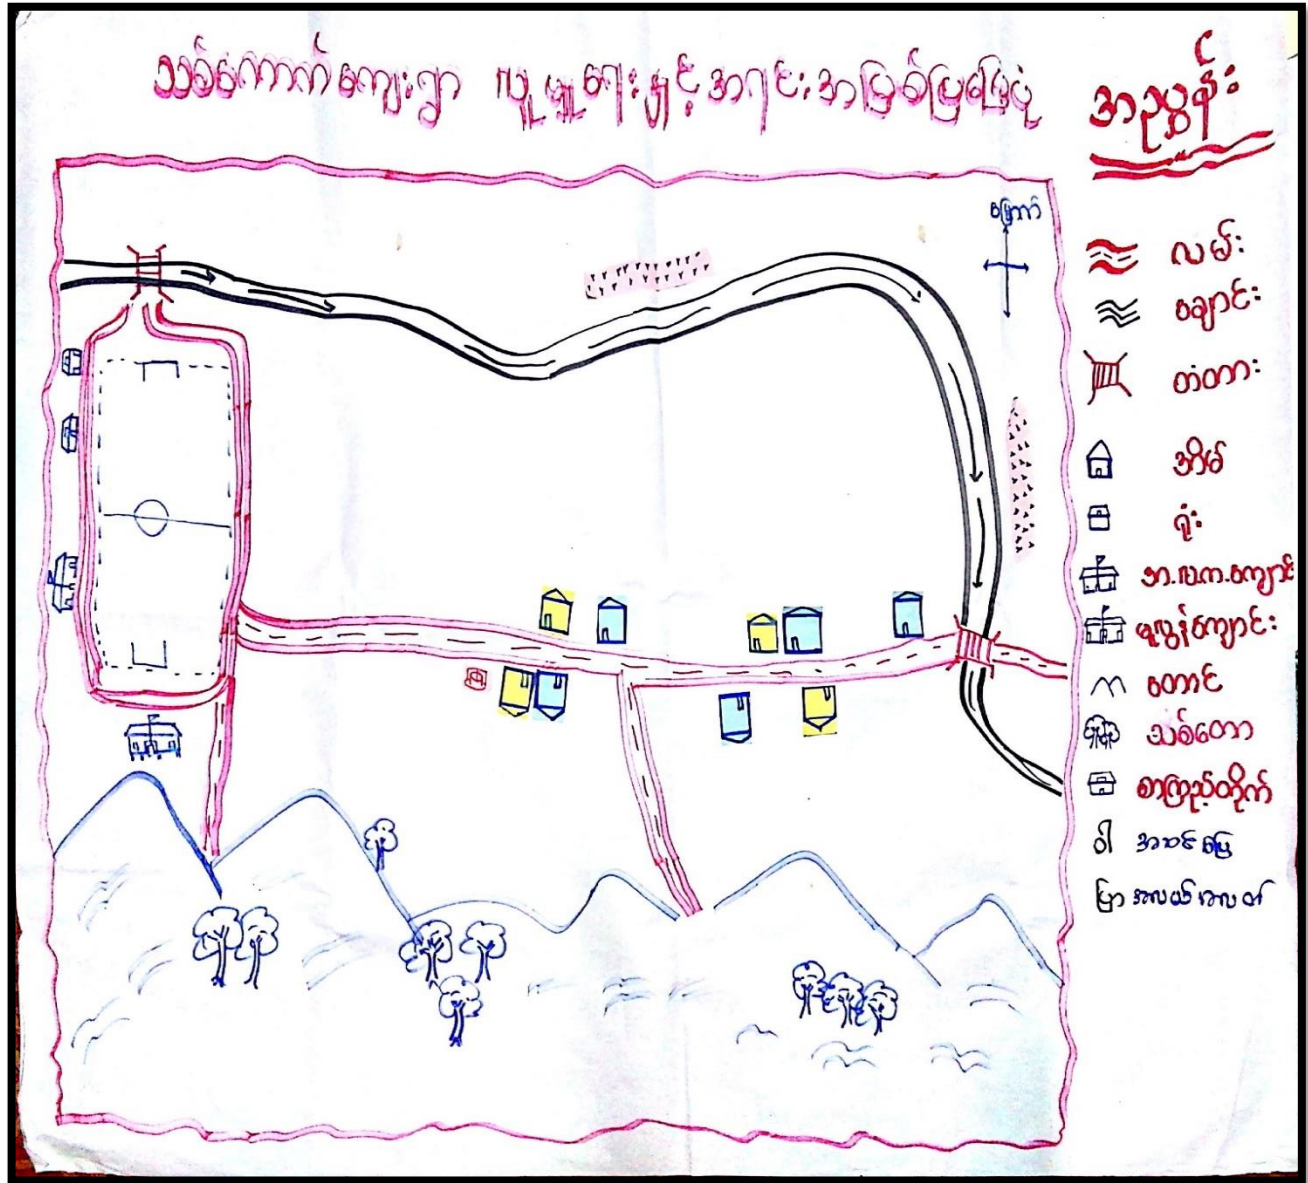 သစ်ကောက်ကျေးရွာ လူမှုရေးနှင့်အရင်းအမြစ်ပြမြေပုံ
အညွှန်း
မြောက်
လမ်း
ချောင်း
တံတား
အိမ်
ရုံး
အ.မ.က.ကျောင်း
မူလွန်ကျောင်း
တောင်
သစ်တော
စာကြည့်တိုက်
ဝါ အထင်မြေ
ပြာ အလယ်အလတ်